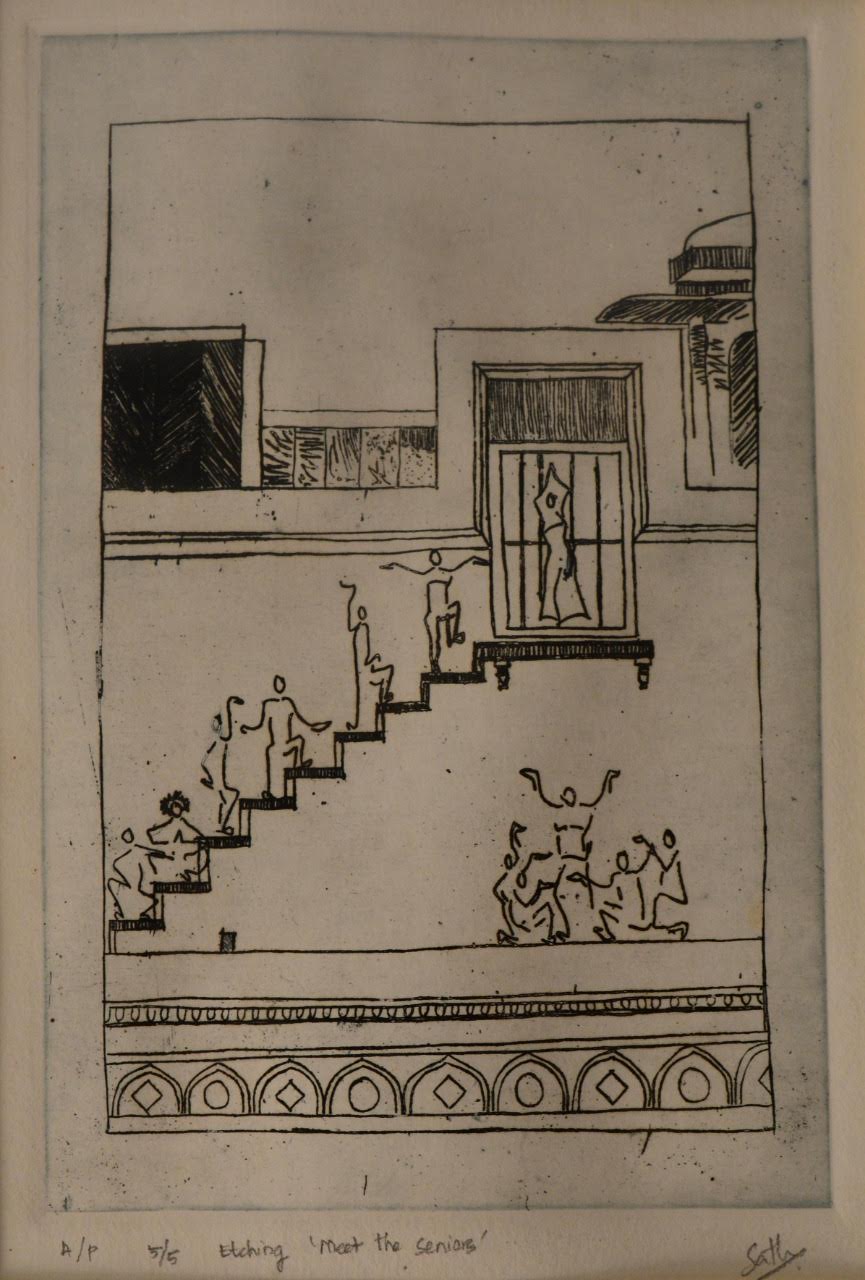 A/P 5/5 Etching 'Meet the Seniors'